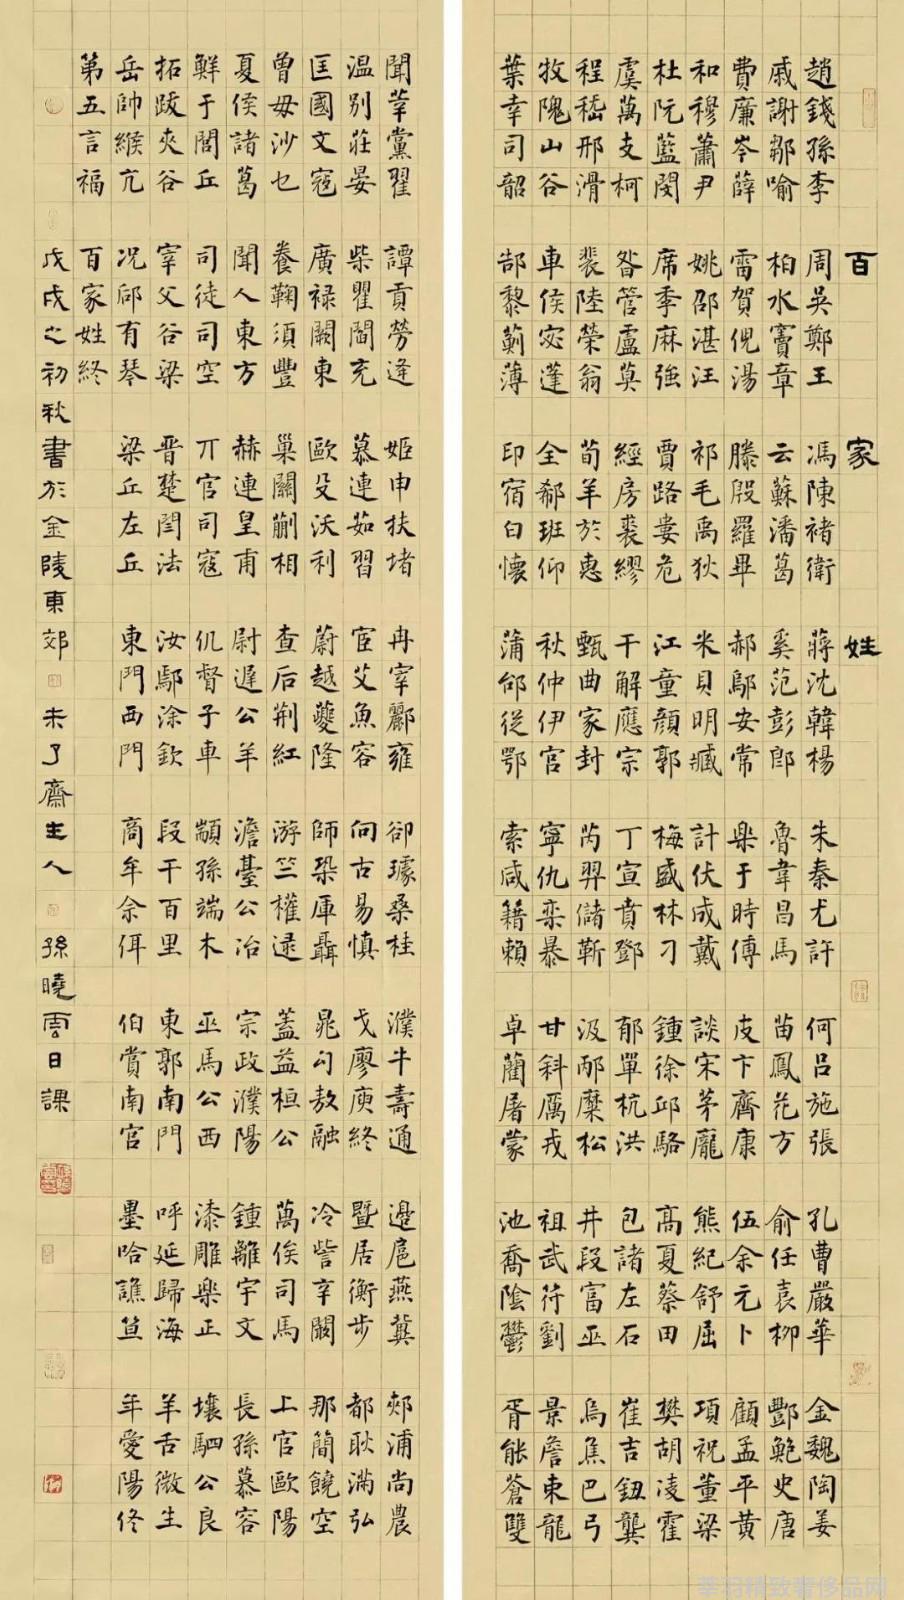 百家姓
趙錢孫李 周吳鄭王 馮陳褚衛 蔣沈韓楊 朱秦尤許 何呂施張 孔曹嚴華 金魏陶姜
戚謝鄒喻 柏水竇章 云蘇潘葛 奚范彭郎 魯韋昌馬 苗鳳花方 俞任袁柳 酆鮑史唐
費廉岑薛 雷賀倪湯 滕殷羅畢 郝鄔安常 樂于時傅 皮卞齊康 伍余元卜 顧孟平黃
和穆蕭尹 姚邵湛汪 祁毛禹狄 米貝明臧 計伏成戴 談宋茅龐 熊紀舒屈 項祝董梁
杜阮藍閔 席季麻強 賈路婁危 江童顏郭 梅盛林刁 鍾徐邱駱 高夏蔡田 樊胡凌霍
虞萬支柯 昝管盧莫 經房裘繆 干解應宗 丁宣賁鄧 郁單杭洪 包諸左石 崔吉鈕龔
程嵇邢滑 裴陸榮翁 荀羊於惠 甄曲家封 芮羿儲靳 汲邴糜松 井段富巫 烏焦巴弓
牧隗山谷 車侯宓蓬 全郗班仰 秋仲伊宮 寧仇欒暴 甘斜厲戎 祖武符劉 景詹束龍
葉幸司韶 郜黎薊薄 印宿白懷 蒲邰從鄂 索咸籍賴 卓藺屠蒙 池喬陰鬱 胥能蒼雙
聞莘黨翟 譚貢勞逄 姬申扶堵 冉宰酈雍 郤璩桑桂 濮牛壽通 邊扈燕冀 郟浦尚農
温別莊晏 柴瞿閻充 慕連茹習 宦艾魚容 向古易慎 戈廖庾終 暨居衡步 都耿滿弘
匡國文寇 廣祿闕東 歐殳沃利 蔚越夔隆 師鞏庫聶 晁勾敖融 冷訾辛闞 那簡饒空
曾毋沙乜 養鞠須豐 巢關蒯相 查后荆紅 游竺權逯 蓋益桓公 萬俟司馬 上官歐陽
夏侯諸葛 聞人東方 赫連皇甫 尉遲公羊 澹臺公冶 宗政濮陽 鍾離宇文 長孫慕容
鮮于閭丘 司徒司空 丌官司寇 仉督子車 顓孫端木 巫馬公西 漆雕樂正 壤駟公良
拓跋夾谷 宰父谷梁 晉楚閆法 汝鄢涂欽 段干百里 東郭南門 呼延歸海 羊舌微生
岳帥緱亢 况郈有琴 梁丘左丘 東門西門 商牟佘佴 伯賞南宮 墨哈譙笪 年愛陽佟
第五言福 百家姓終
戊戌之初秋書於金陵東郊未了齋主人孫曉雲日課
華羽精致奢侈品网